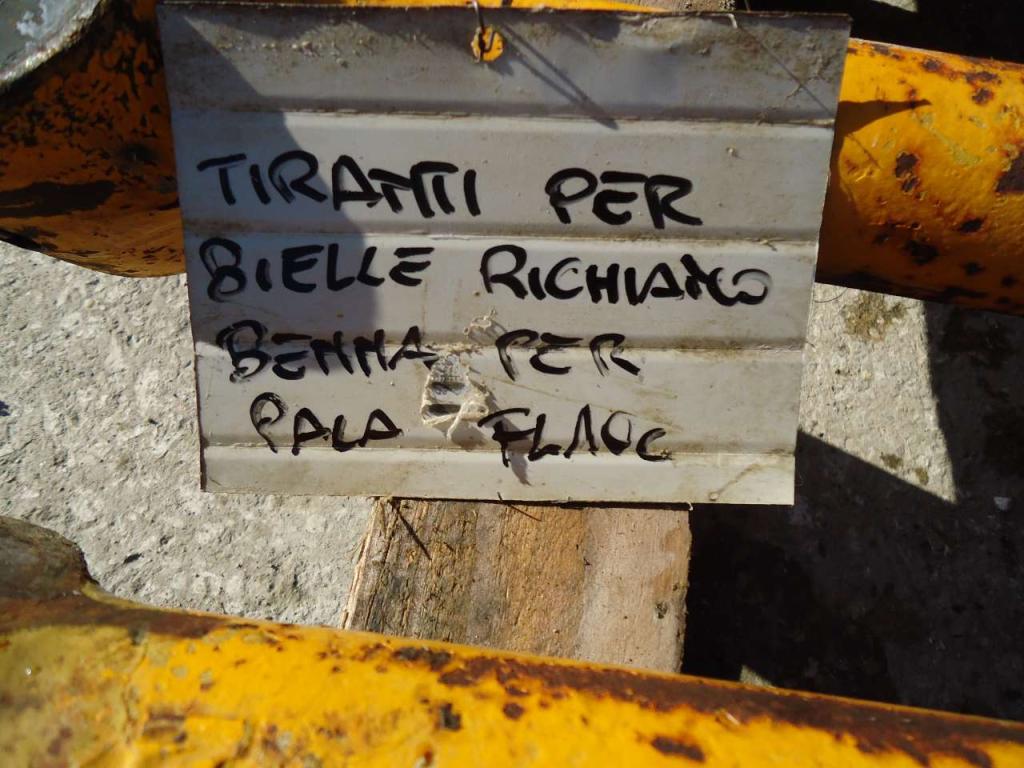 TIRANTI PER
BIELLE RICHIAMO
BENNA PER
PALA FL10C